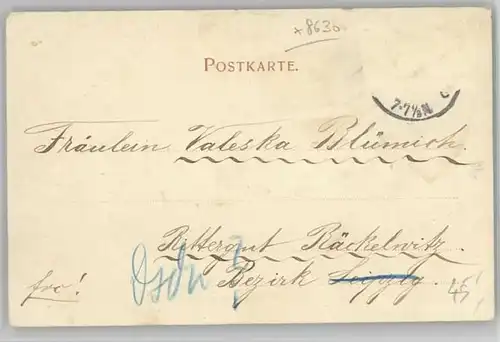 x8630
POSTKARTE.
7-7½N
Fräulein Valeska Blümich.
Rittergut Räckelwitz.
Bezirk Leipzig.
fro!